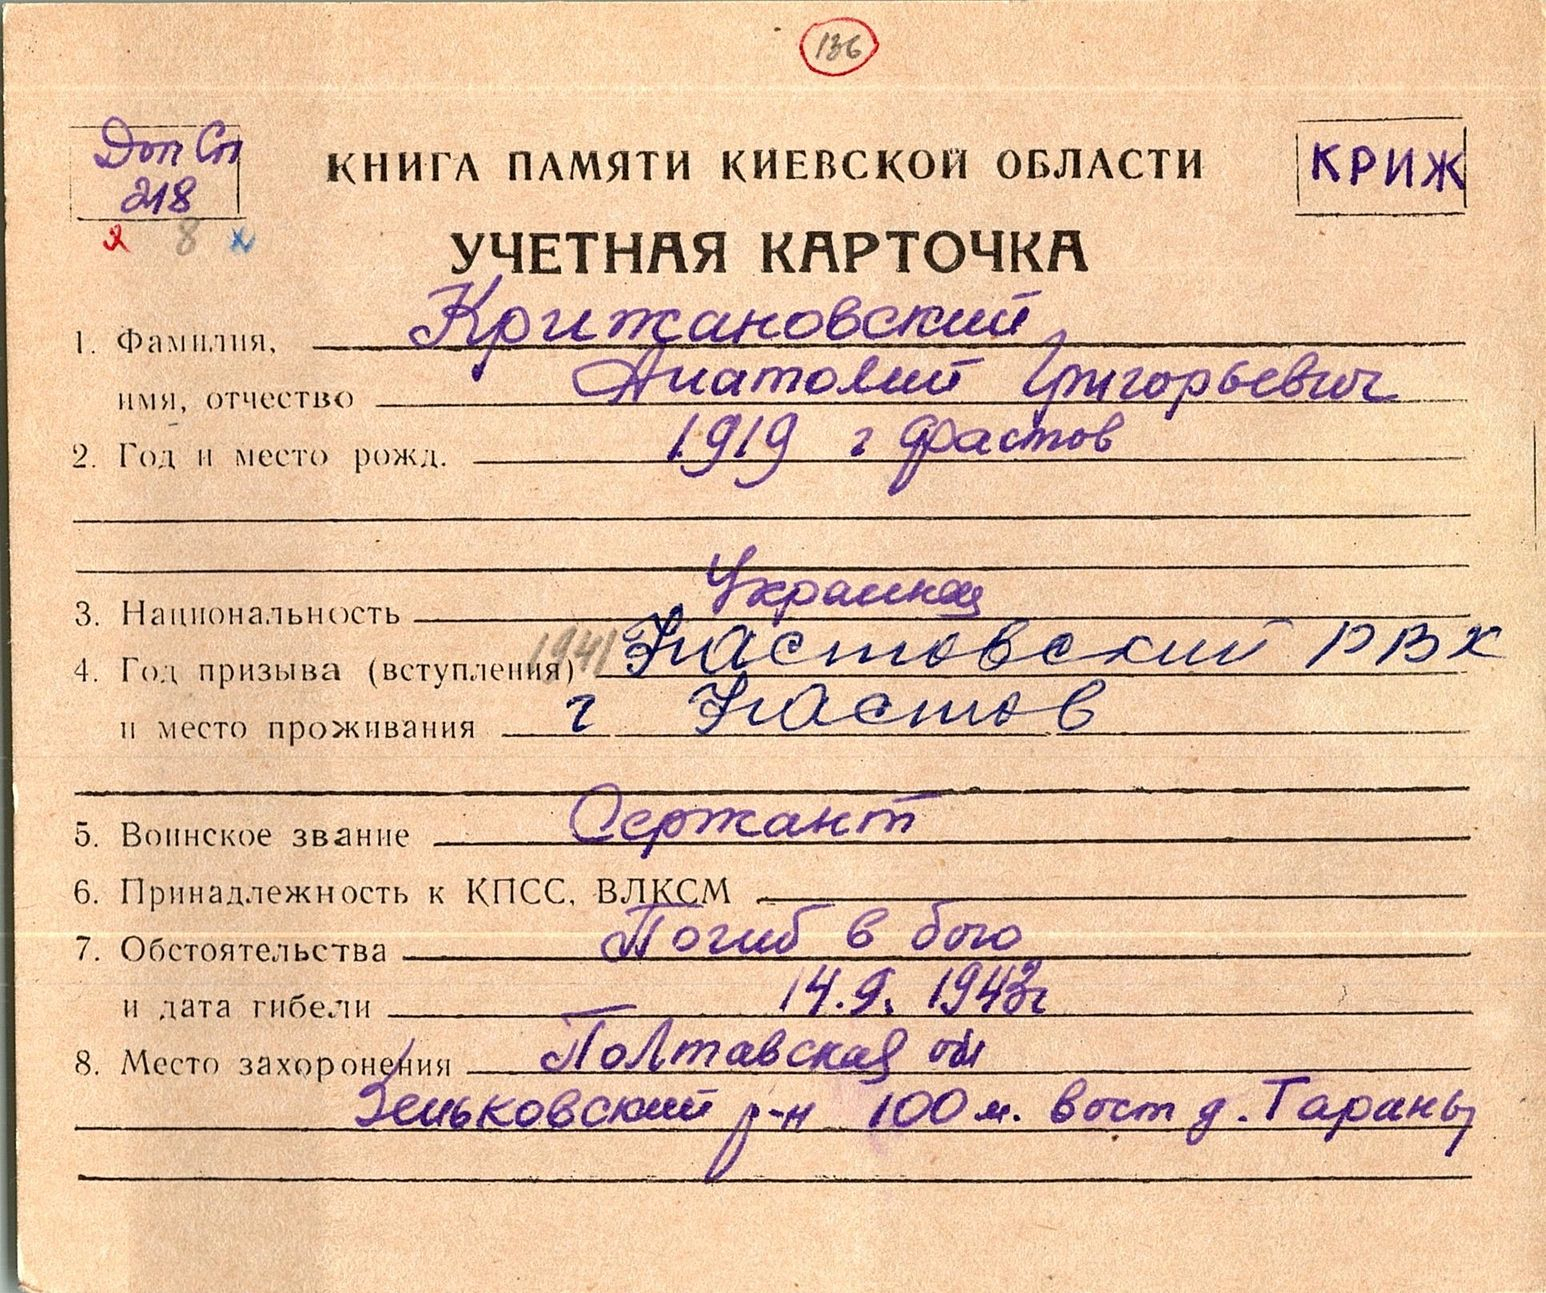 136
Доп Сп
218
КНИГА ПАМЯТИ КИЕВСКОЙ ОБЛАСТИ
КРИЖ
8
УЧЕТНАЯ КАРТОЧКА
1. Фамилия, Крижановский
имя, отчество Анатолий Григорьевич
2. Год и место рожд. 1919 г Фастов
3. Национальность Украинец
4. Год призыва (вступления) 1941 Фастовский РВК
и место проживания г Фастов
5. Воинское звание Сержант
6. Принадлежность к КПСС, ВЛКСМ
7. Обстоятельства Погиб в бою
и дата гибели 14.9. 1943г
8. Место захоронения Полтавская обл
Зеньковский р-н 100 м. вост д. Тараны